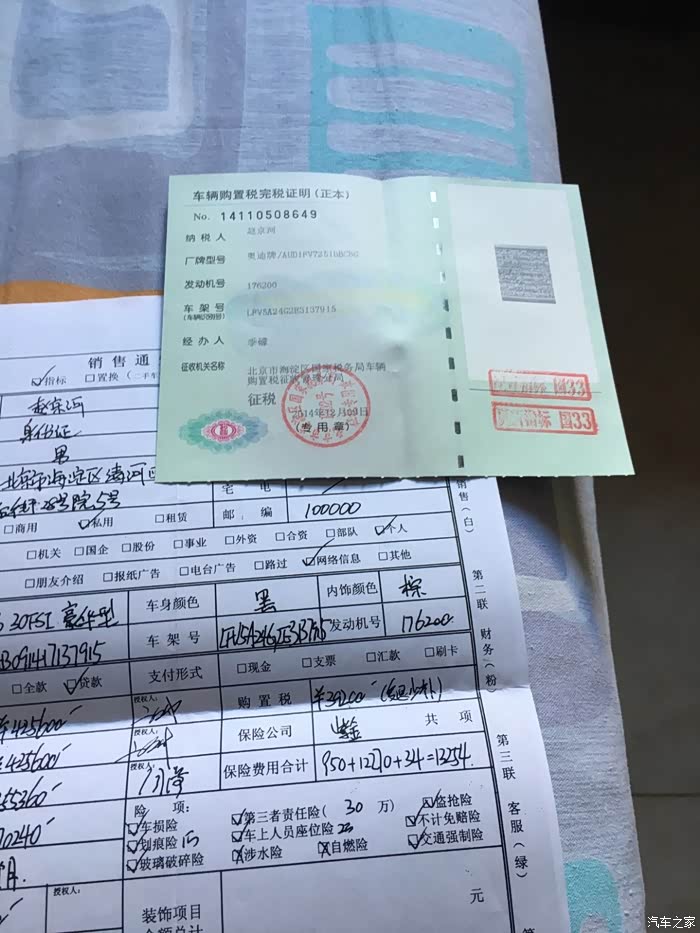 车辆购置税完税证明(正本)
No. 14110508649
纳税人 赵京河
厂牌型号
发动机号 176200
车架号
(车辆识别号)
经办人
征收机关名称 北京市海淀区国家税务局车辆
购置税征收管理分局
征税
2014年12月09日
(专用章)
指标 国33
指标 国33
销售通
指标 □置换(二手车
赵京河
身份证
男
北京市海淀区清河
28号院5号
宅电
邮编 100000
销售(白)
□商用 私用 □租赁
□机关 □国企 □股份 □事业 □外资 □合资 □部队 个人
□朋友介绍 □报纸广告 □电台广告 □路过 网络信息 □其他
第二联 财务(粉)
30FSI 豪华型 车身颜色 黑 内饰颜色 棕
B091417137915 车架号 发动机号 176200
□全款 贷款 支付形式 □现金 □支票 □汇款 □刷卡
¥425600 授权人: 购置税 ¥39200
¥425600 授权人: 保险公司 共项
55360 授权人: 保险费用合计 950+12270+34=13254
70240 险项: 第三者责任险(30万) 盗抢险
车损险 车上人员座位险 不计免赔险
月. 划痕险 涉水险 自燃险 交通强制险
玻璃破碎险
第三联 客服(绿)
授权人: 装饰项目 元
金额总计
第
汽车之家